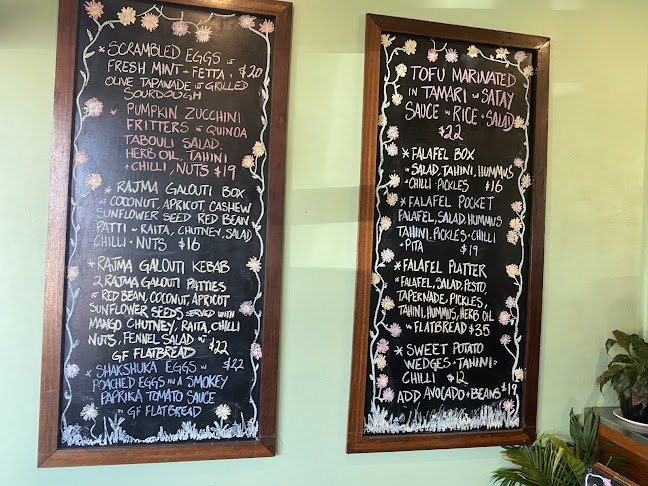 * SCRAMBLED EGGS W
FRESH MINT - FETTA, $20
OLIVE TAPANADE W GRILLED
SOURDOUGH
* PUMPKIN ZUCCHINI
FRITTERS W QUINOA
TABOULI SALAD.
HERB OIL, TAHINI
+ CHILLI, NUTS $19
* RAJMA GALOUTI BOX
W COCONUT, APRICOT, CASHEW
SUNFLOWER SEED RED BEAN
PATTI W RAITA, CHUTNEY, SALAD
CHILLI - NUTS $16
* RAJMA GALOUTI KEBAB
2 RAJMA GALOUTI PATTIES
W RED BEAN, COCONUT, APRICOT
SUNFLOWER SEEDS SERVED WITH
MANGO CHUTNEY, RAITA, CHILLI
NUTS, FENNEL SALAD W $22
GF FLATBREAD
* SHAKSHUKA EGGS W $22
POACHED EGGS IN A SMOKEY
PAPRIKA TOMATO SAUCE
W GF FLATBREAD
TOFU MARINATED
IN TAMARI W SATAY
SAUCE W RICE + SALAD
$22
* FALAFEL BOX
W SALAD, TAHINI, HUMMUS
+ CHILLI PICKLES $16
* FALAFEL POCKET
FALAFEL, SALAD HUMMUS
TAHINI, PICKLES + CHILLI
+ PITA $19
* FALAFEL PLATTER
W FALAFEL, SALAD, PESTO,
TAPERNADE, PICKLES,
TAHINI, HUMMUS, HERB OIL
W FLATBREAD $35
* SWEET POTATO
WEDGES + TAHINI +
CHILLI $12
ADD AVOCADO + BEANS $19